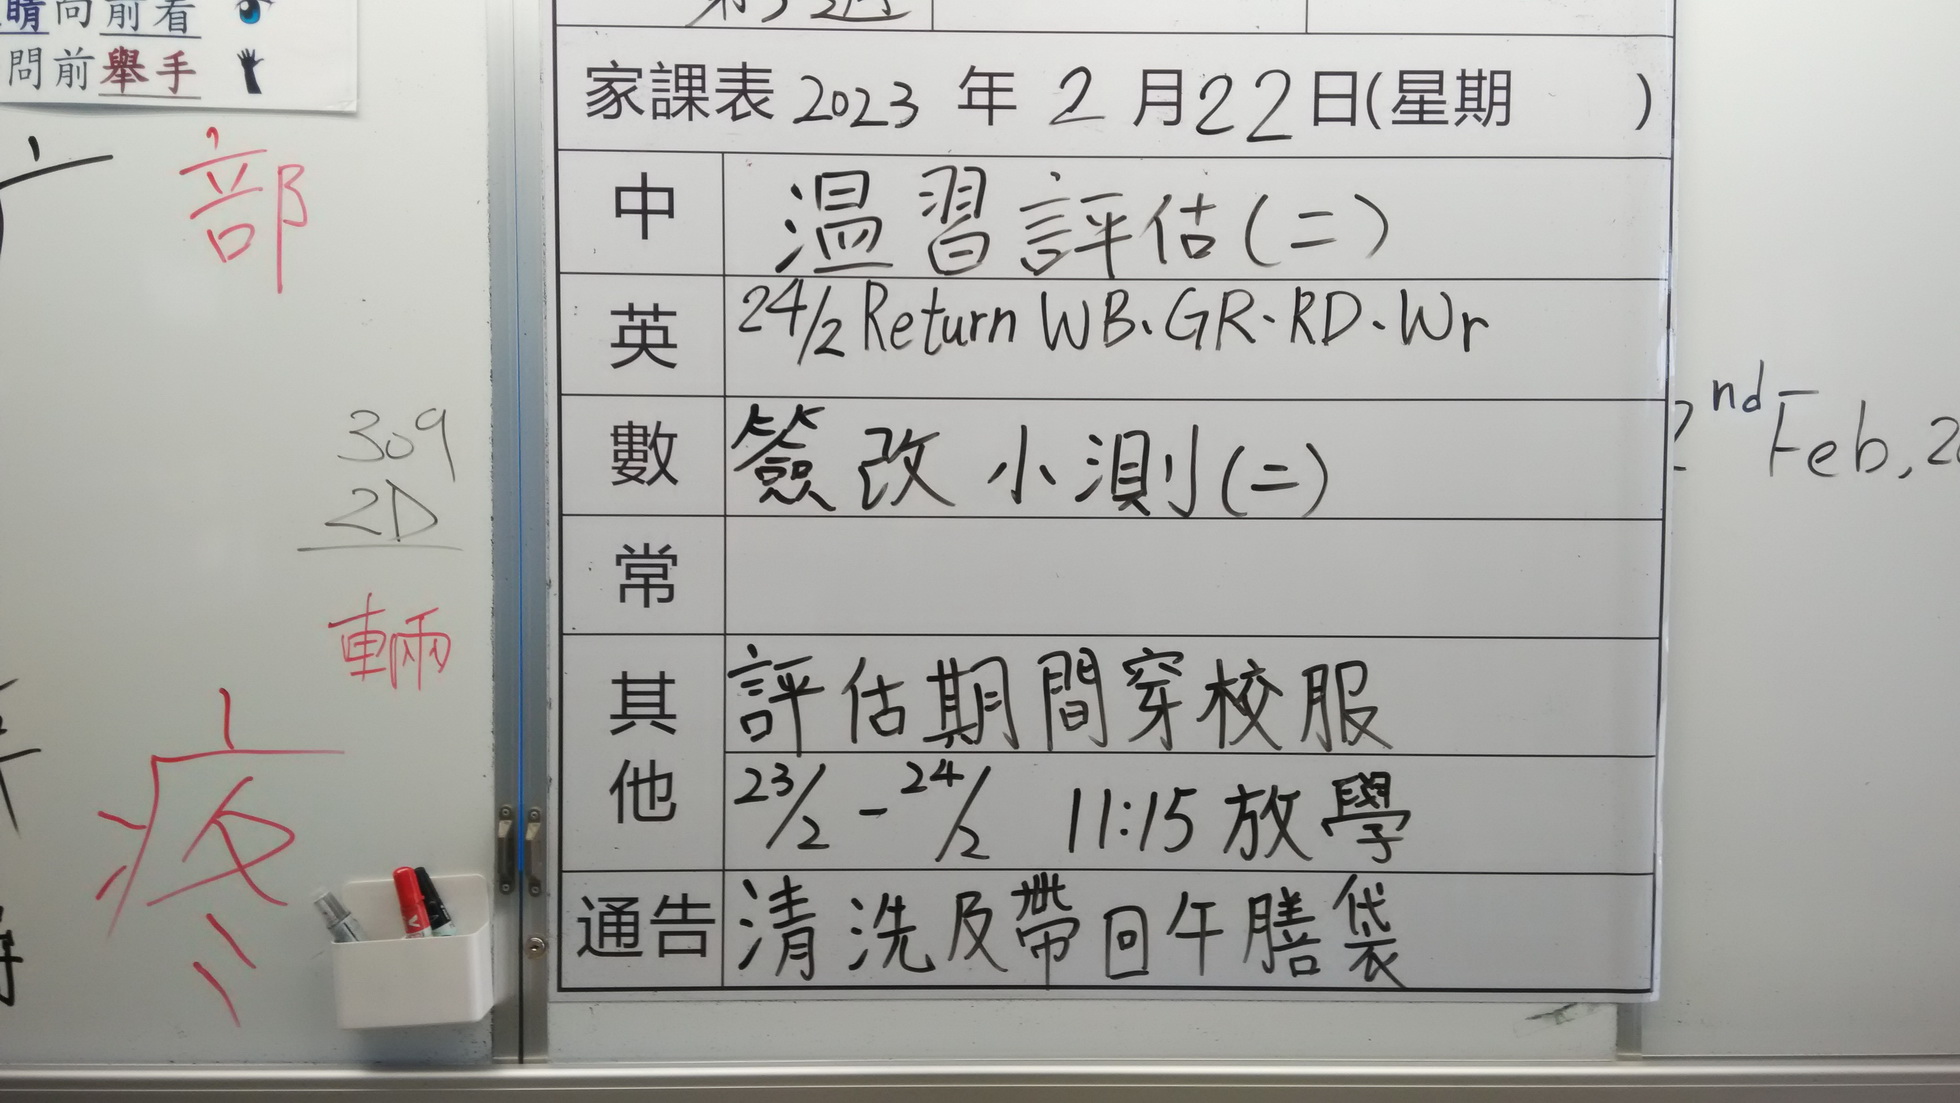 睛向前看
問前舉手
部
309
2D
輛
疼
家課表 2023 年 2 月 22 日(星期 )
中 溫習評估(二)
英 24/2 Return WB、GR、RD、Wr
數 簽改小測(二)
常
其他 評估期間穿校服
23/2 - 24/2 11:15 放學
通告 清洗及帶回午膳袋
nd Feb, 2